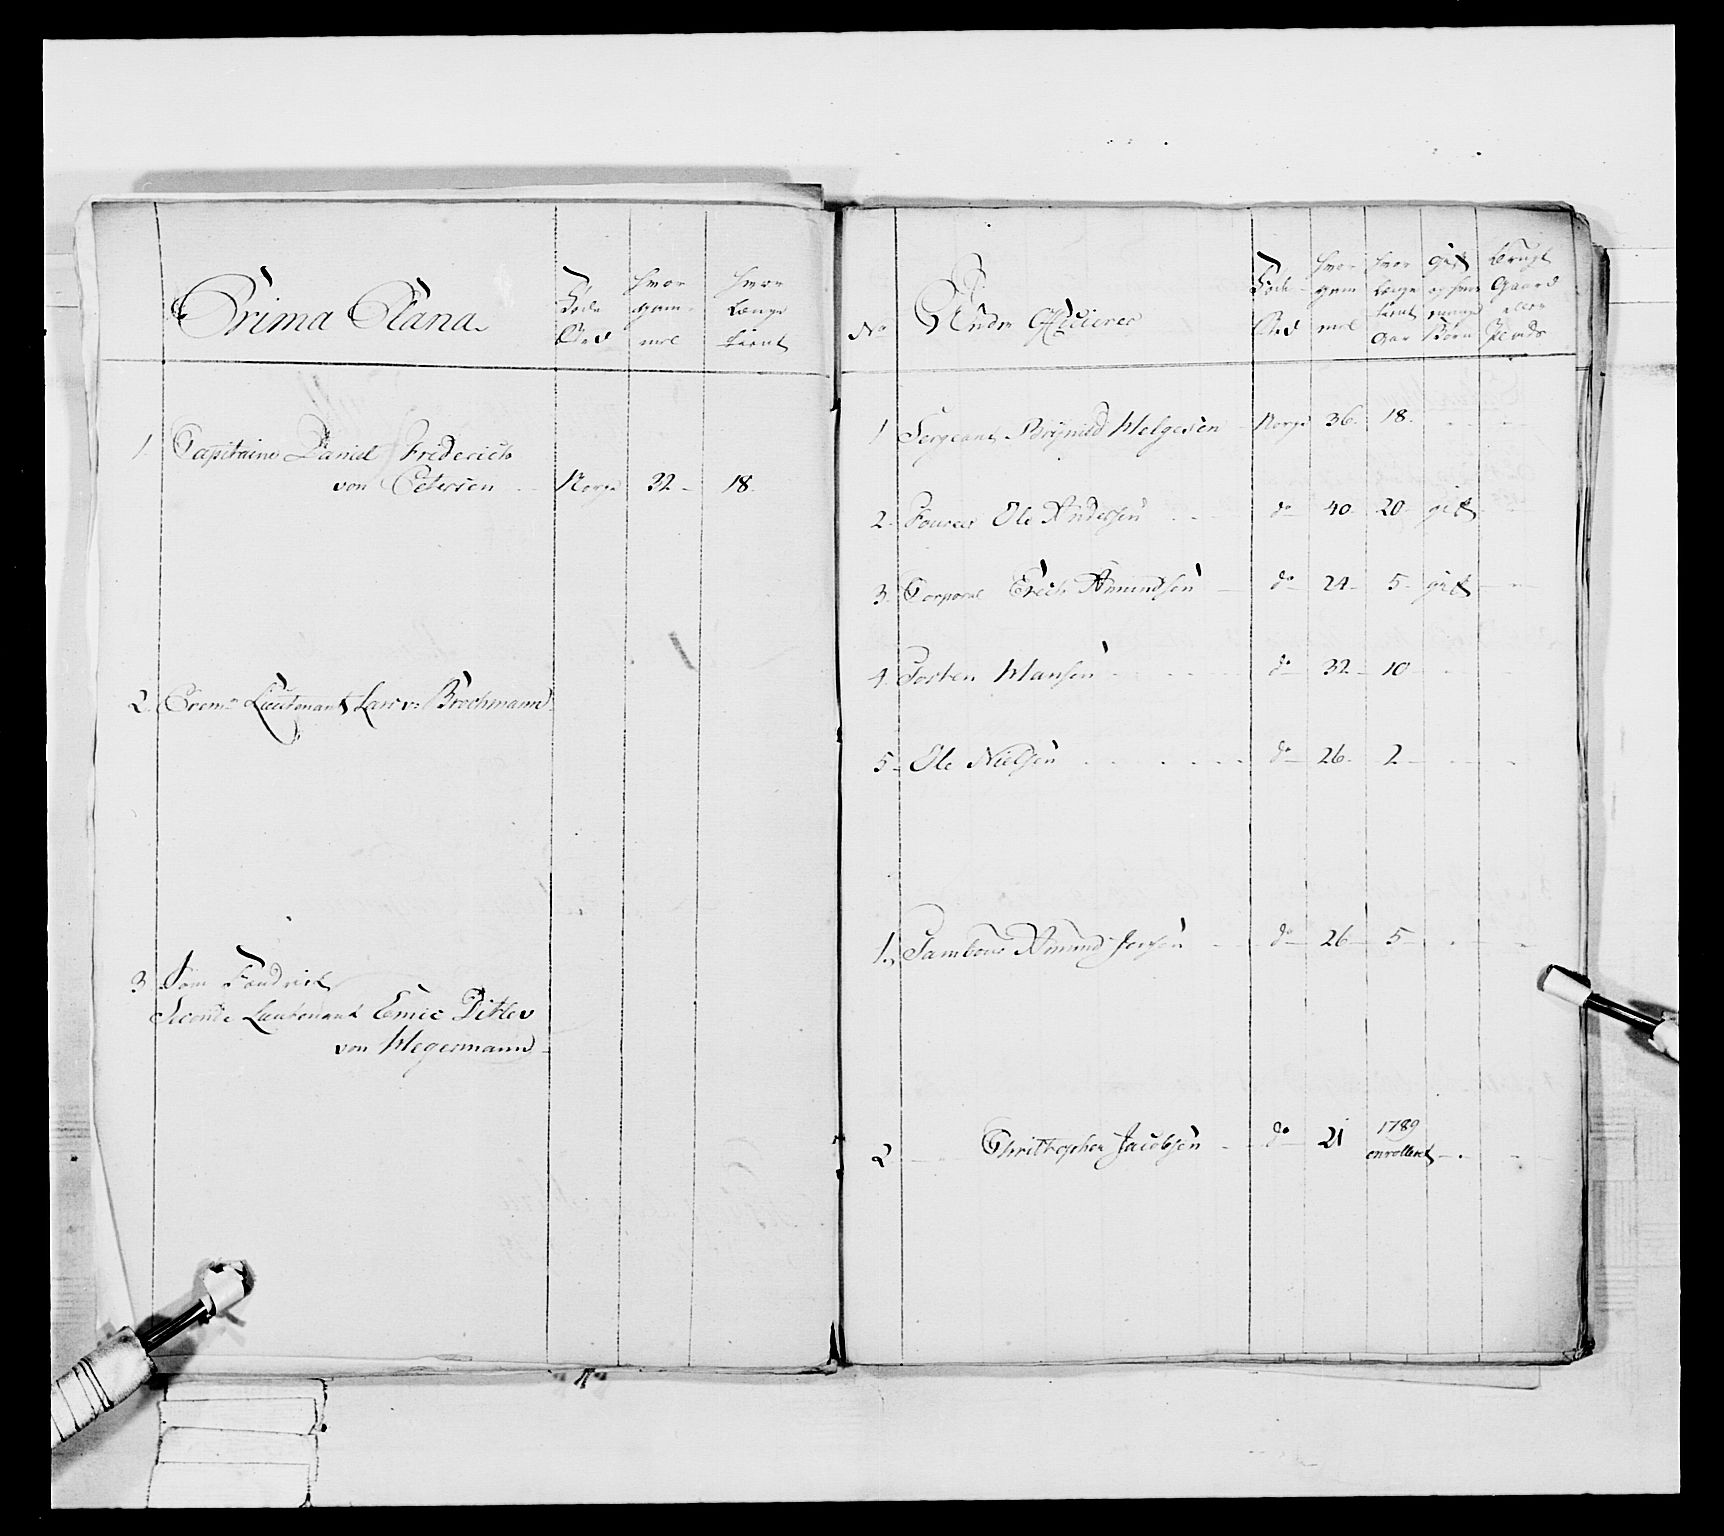 Prima Plana
Føde
Sted
Hvor
gam-
mel
Hvor
Længe
tient
1 Capitaine Daniel Frederich
von Petersen Norge 32 18.
2. Prem: Lieutenant Lars v: Brochmann
3 Som Fendrich
Seconde Lieutenant Emic Ditlev
von Hegermann
No
Under Officierer
Føde
Sted
Hvor
gam
mel
Hvor
Længe
tient
Aar
Gift
og hvor
mange
Børn
Brugt
Gaard
eller
Plads
1 Sergeant Brynild Helgesen Norge 36. 18.
2. Fourer Ole Andersen do 40. 20. gift
3. Corporal Erich Amundsen do 24. 5. gift
4. Torben Hansen do 32. 10
5. Ole Nielsen do 26. 2
1. Tambour Amund Jensen do 26 5
2 Christopher Jacobsen do 21 1789
enrolleret